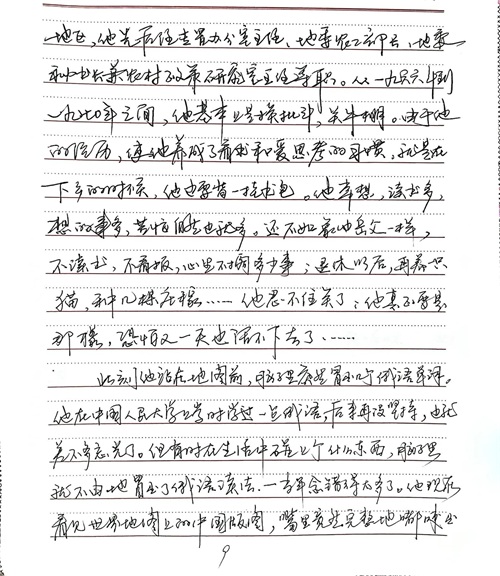 地区,他先后任专员办公室主任、地委农工部长、地委
副秘书长兼农村改革研究室主任等职。从一九六六年到
一九七〇年之间,他基本上是挨批斗,关牛棚。由于他
的经历,使他养成了看书和爱思考的习惯,就是在
下乡的时候,他也要背一挎书包。他常想,读书多,
想的事多,苦恼自然也就多。还不如家中岳父一样,
不读书,不看报,心里不搁多少事;退休以后,再养只
猫,种几棵庄稼……他忍不住笑了:他真要是
那样,恐怕又一天也活不下去了……
此刻他站在地图前,脑子里突然冒出几个俄语单词。
他在中国人民大学上学时学过一点俄语,后来再没坚持,也就
差不多忘光了。但有时在生活中不管见个什么东西,脑子里
就不由地冒出了俄语读法,一多半念错得太多了。他现在
看见世界地图上的中国版图,嘴里竟然完整地嘟哝出
9